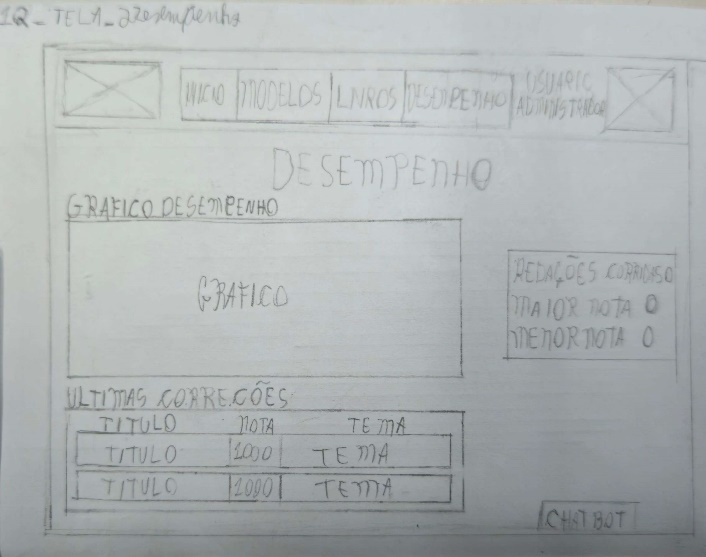 12_TELA_Desempenho
INICIO MODELOS LIVROS DESEMPENHO USUARIO
ADMINISTRADOR
DESEMPENHO
GRAFICO DESEMPENHO
GRAFICO
REDAÇÕES CORRIDAS 0
MAIOR NOTA 0
MENOR NOTA 0
ULTIMAS CORREÇÕES
TITULO NOTA TEMA
TITULO 1000 TEMA
TITULO 1000 TEMA
CHAT BOT